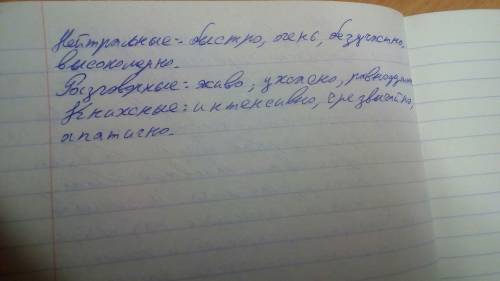 Нейтральные:- быстро, очень, безучастно,
высокомерно.
Разговорные:- живо, ужасно, равнодушн
Книжные: интенсивно, чрезвычайно,
апатично.